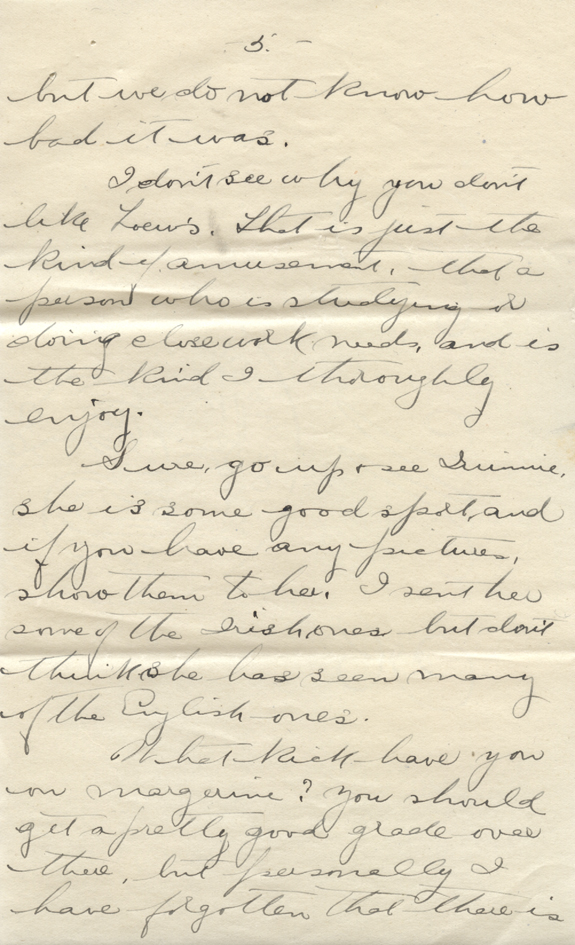 -5.-
but we do not know how
bad it was.
I don't see why you don't
like Loew's. That is just the
kind of amusement, that a
person who is studying or
doing close work needs, and is
the kind I thoroughly
enjoy.
Sure, go up + see
she is some good sport, and
if you have any pictures,
show them to her. I sent her
some of the Irish ones but don't
think she has seen many
of the English ones.
What kick have you
on margerine? You should
get a pretty good grade over
there, but personally I
have forgotten that there is